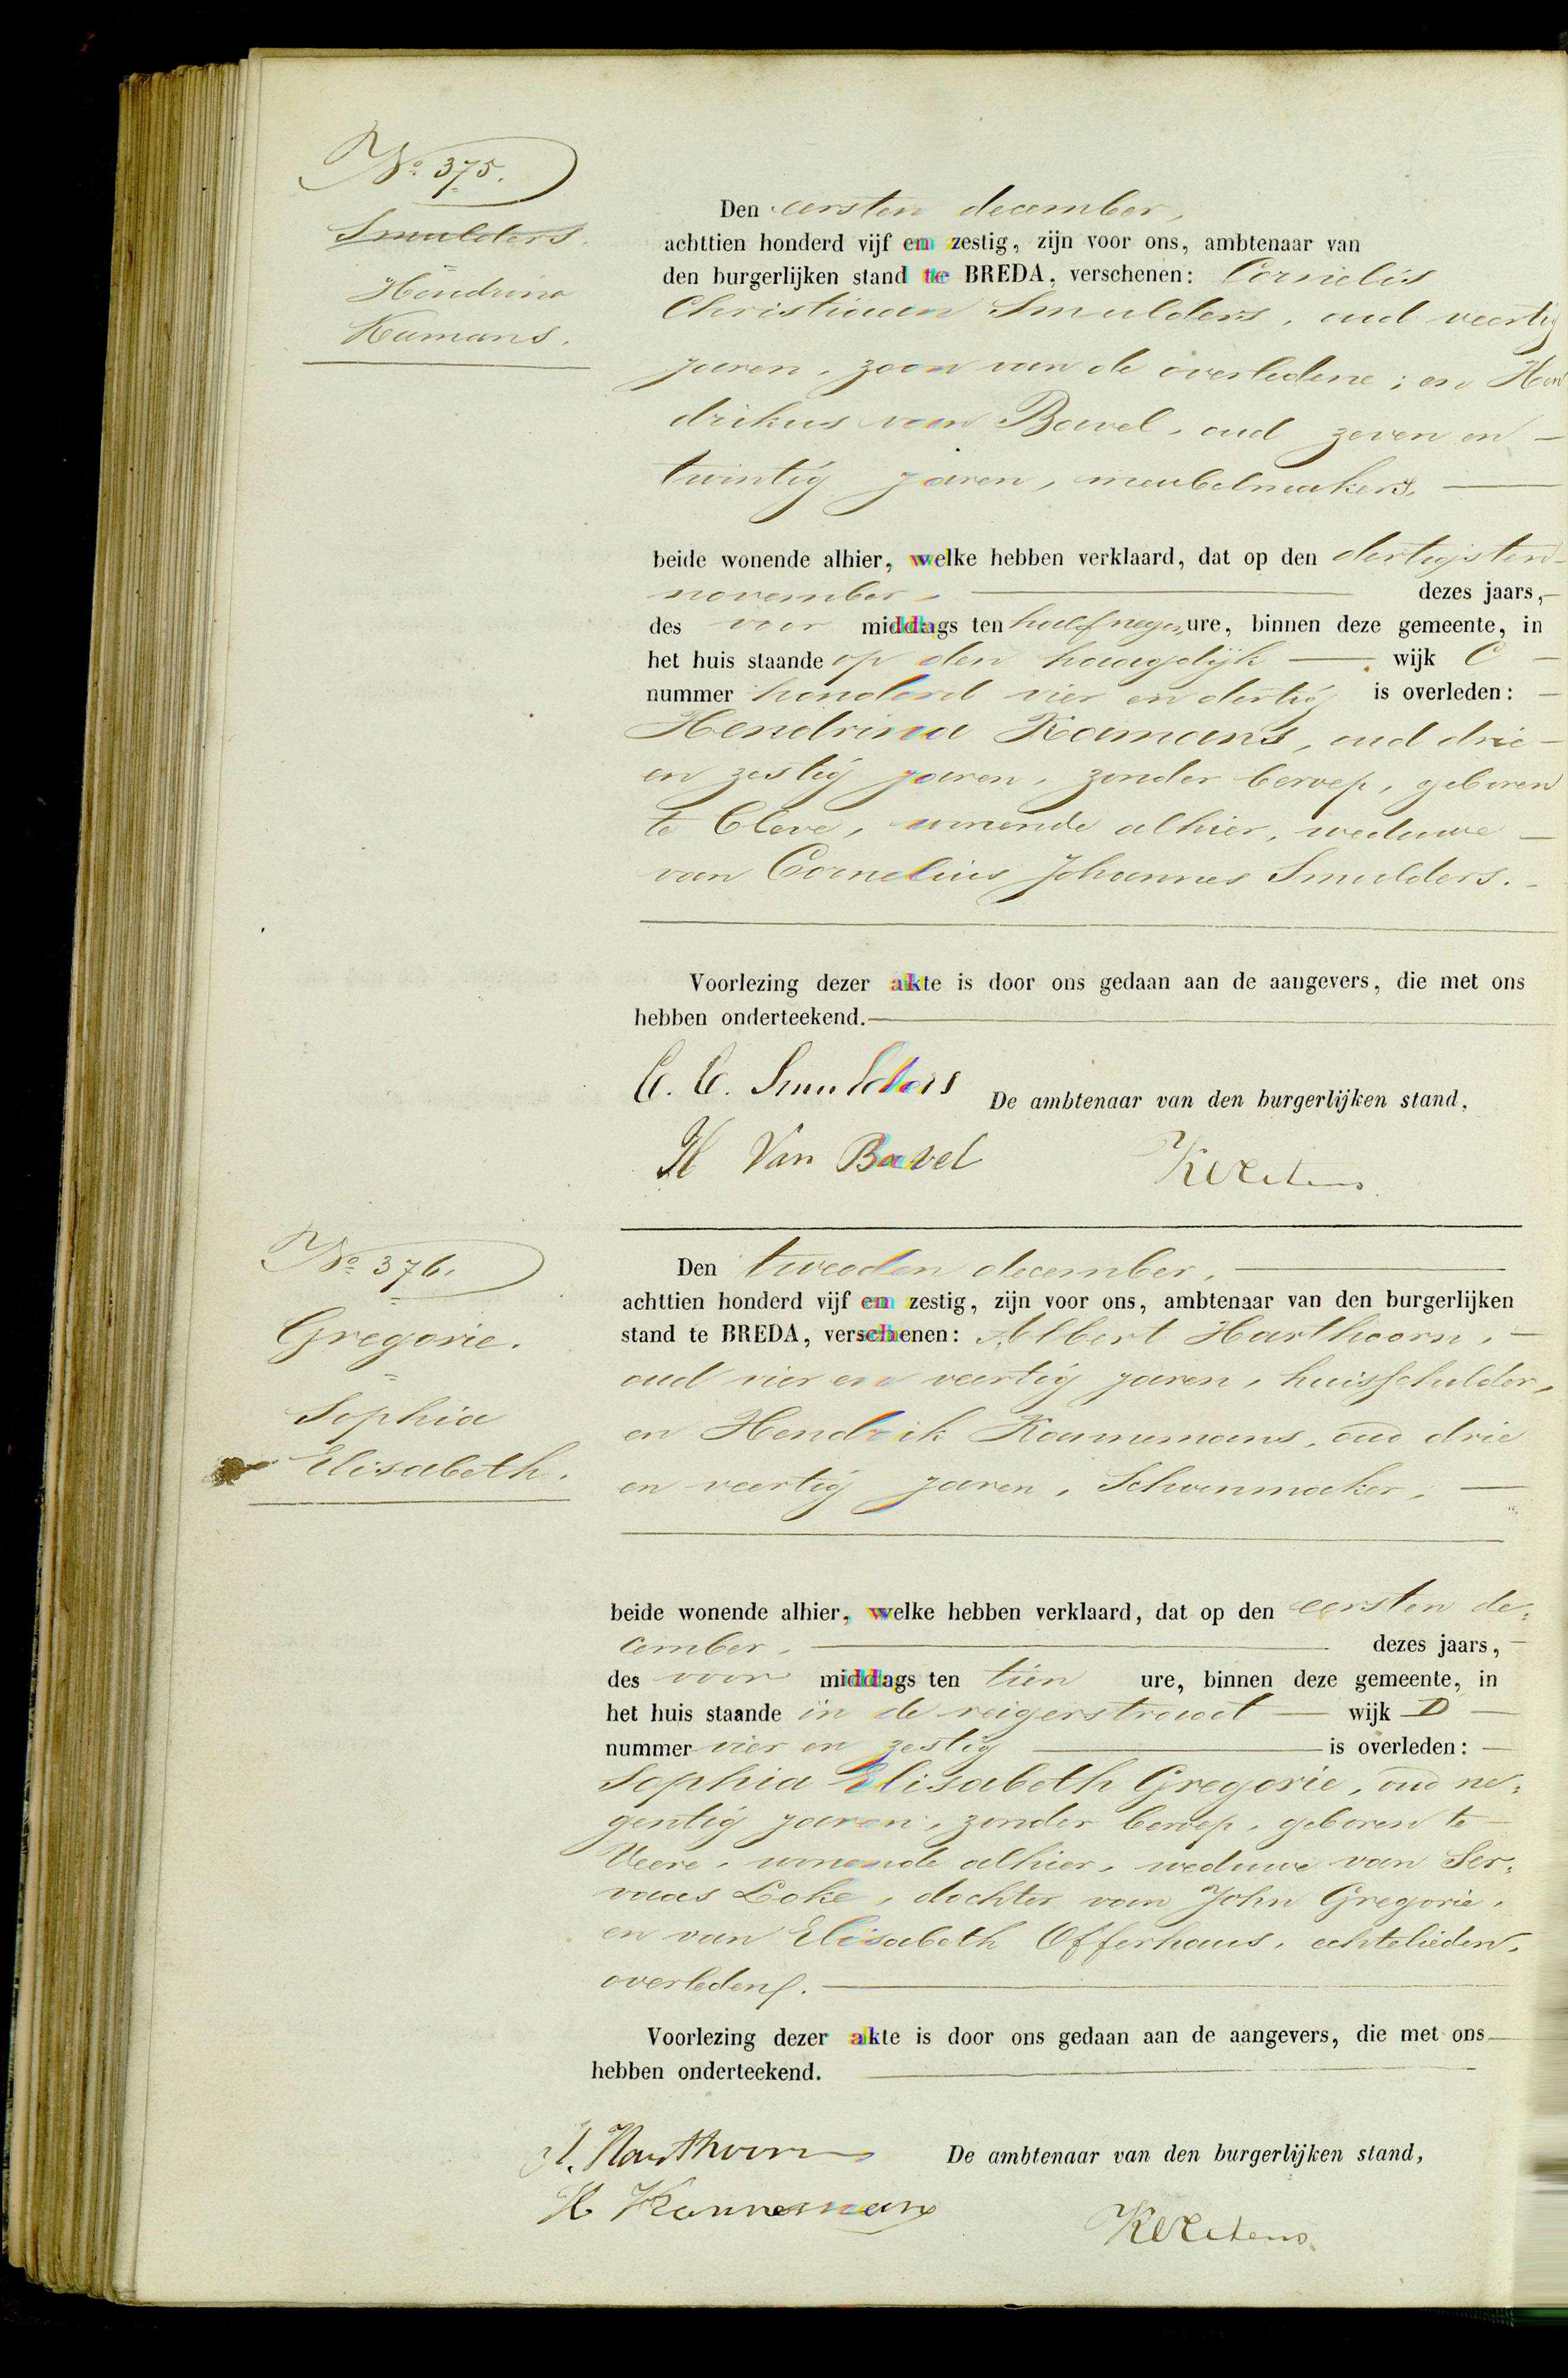 No. 375.
Smulders.
Hendrina
Kamans.
Den eersten december,
achttien honderd vijf en zestig, zijn voor ons, ambtenaar van
den burgerlijken stand te BREDA, verschenen: Cornelis
Christiaan Smulders, oud veertig
jaren, zoon van de overledene; en Hen
drikus van Bavel, oud zeven en
twintig jaren, meubelmakers,
beide wonende alhier, welke hebben verklaard, dat op den dertigsten
november, dezes jaars,
des voor middags ten half negen ure, binnen deze gemeente, in
het huis staande op den haagdijk wijk C
nummer honderd vier en dertig is overleden:
Hendrina Kamans, oud drie
en zestig jaren, zonder beroep, geboren
te Cleve, wonende alhier, weduwe
van Cornelius Johannes Smulders.
Voorlezing dezer akte is door ons gedaan aan de aangevers, die met ons
hebben onderteekend.
C. C. Smulders
De ambtenaar van den burgerlijken stand,
H Van Bavel
No. 376.
Gregorie.
Sophia
Elisabeth.
Den tweeden december,
achttien honderd vijf en zestig, zijn voor ons, ambtenaar van den burgerlijken
stand te BREDA, verschenen: Albert Harthoorn,
oud vier en veertig jaren, huisschilder,
en Hendrik Kannemans, oud drie
en veertig jaren, Schoenmaker,
beide wonende alhier, welke hebben verklaard, dat op den eersten de:
cember, dezes jaars,
des voor middags ten tien ure, binnen deze gemeente, in
het huis staande in de reigerstraat wijk D
nummer vier en zestig is overleden:
Sophia Elisabeth Gregorie, oud ne:
gentig jaren, zonder beroep, geboren te
Veere, wonende alhier, weduwe van Ser:
vaas Loke, dochter van John Gregorie,
en van Elisabeth Offerhaus, echtelieden,
overleden.
Voorlezing dezer akte is door ons gedaan aan de aangevers, die met ons
hebben onderteekend.
A. Harthoorn
De ambtenaar van den burgerlijken stand,
H Kannemans